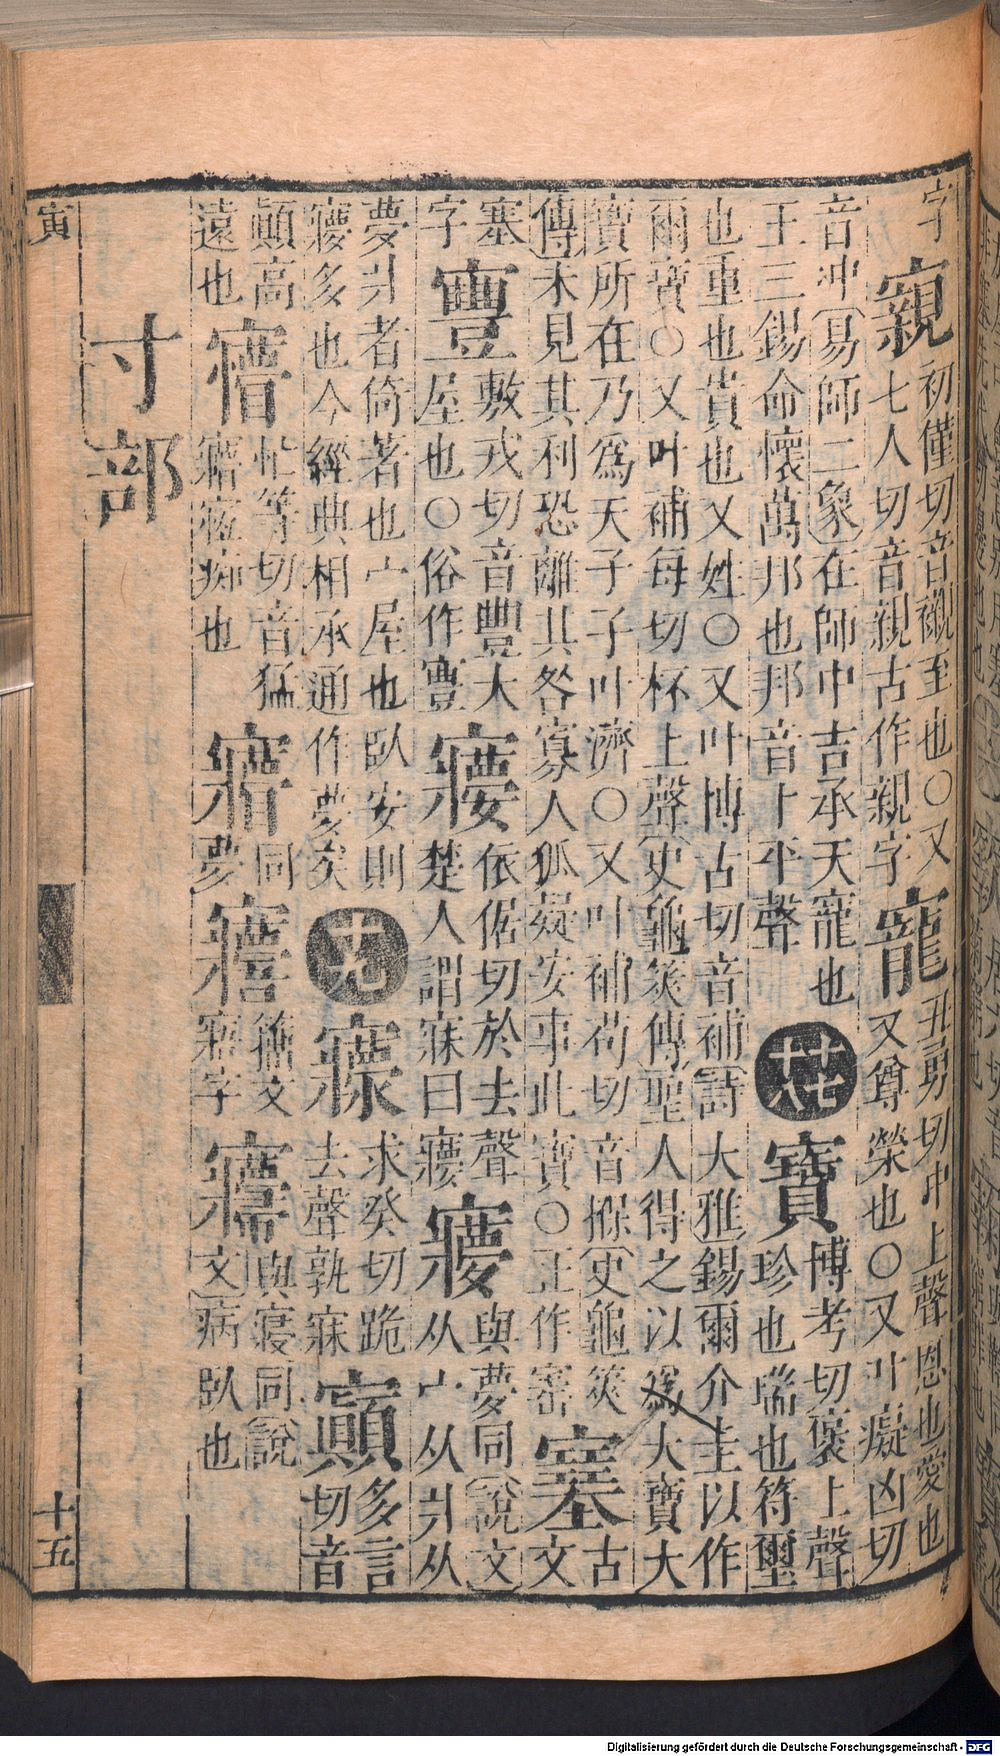 字寴初僅切音襯至也○又
七人切音親古作親字
寵丑勇切冲上聲恩也愛也
又尊榮也○又叶癡凶切
音冲(易師二象)在師中吉承天寵也
王三錫命懷萬邦也邦音卜平聲
十七
十八
寶博考切褒上聲
珍也瑞也符璽
也重也貴也又姓○又叶博古切音補(詩大雅)錫爾介圭以作
爾寶○又叶補每切杯上聲(史龜筴傳)聖人得之以為大寶大
寶所在乃為天子子叶濟○又叶補苟切音掊(史龜筴
傳)未見其利恐離其咎寡人狐疑安事此寶○正作寚
古
文
塞
字
寷敷戎切音豐大
屋也○俗作寷
依倨切於去聲
楚人謂寐曰
㝱與夢同(說文)
从宀从爿从
夢爿者倚著也宀屋也臥安則
㝱多也今經典相承通作夢矣
十九
求癸切跪
去聲孰寐
巔多言
切音
顛高
遠也
忙等切音猛
痴也
同
夢
籀文
寤字
與寑同(說
文)病臥也
寸部
寅
十五
Digitalisierung gefördert durch die Deutsche Forschungsgemeinschaft - DFG